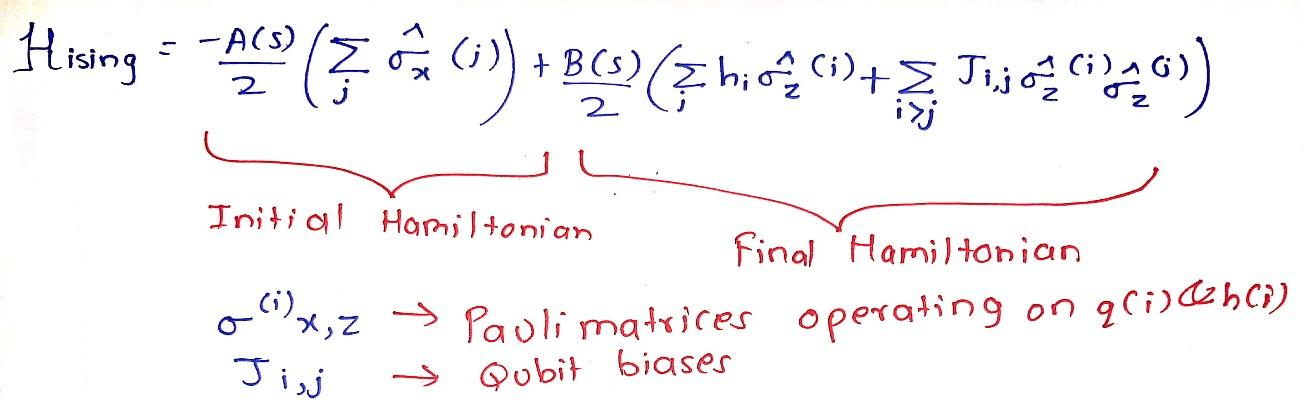 Hising = -A(s)/2 (Σ_j σ̂_x (j)) + B(s)/2 (Σ_j h_i σ̂_z (i) + Σ_{i>j} J_{i,j} σ̂_z (i) σ̂_z (j))
Initial Hamiltonian
Final Hamiltonian
σ^(i) x,z → Pauli matrices operating on q(i) & h(i)
J i,j → Qubit biases